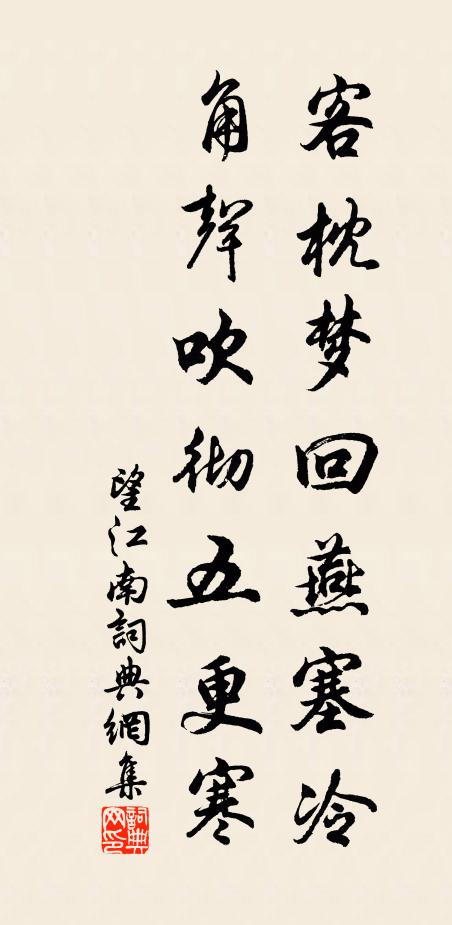 客枕梦回燕塞冷
角聲吹彻五更寒
望江南詞典網集
詞典网印